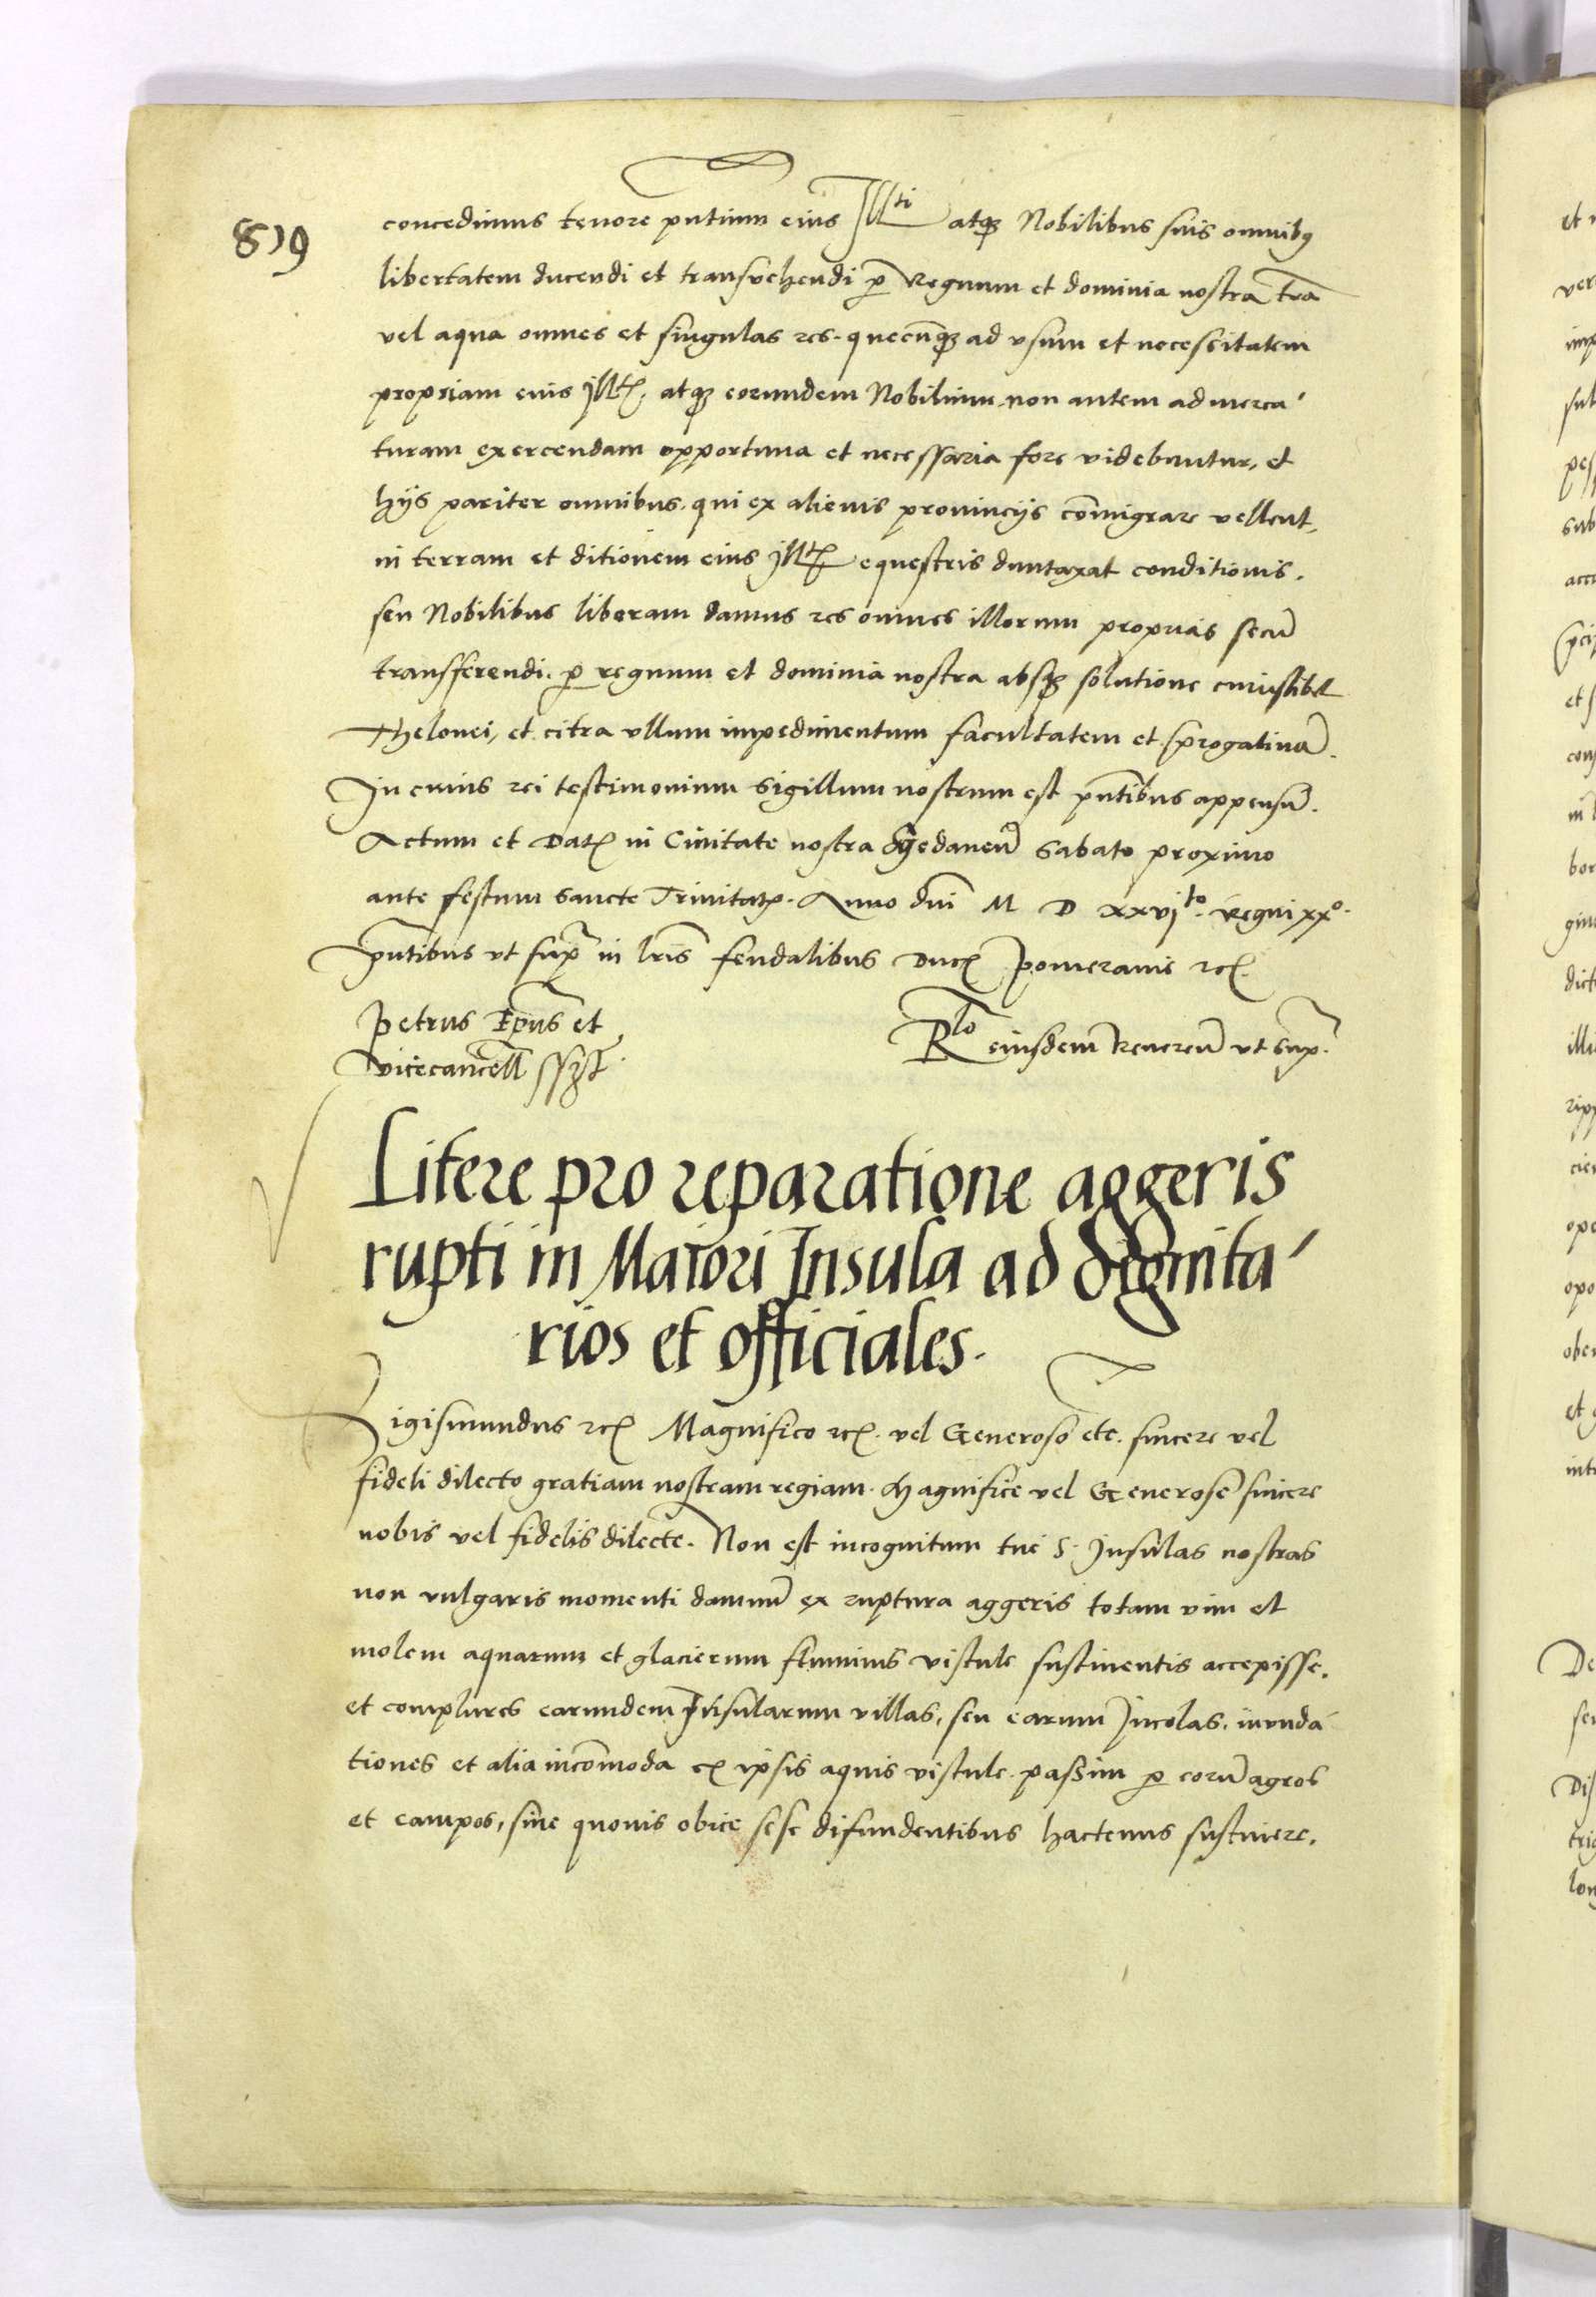 819
concedimus tenore pntium eius Illti atqȝ Nobilibus suis omnibꝯ
libertatem ducendi et transvehendi p̄ Regnum et dominia nostra tr̄a
vel aqua omnes et singulas res. quecūqȝ ad vsum et necessitatem
propriam eius Illtꝭ. atqȝ eorundem Nobilium non autem ad merca
turam exercendam opportuna et necessaria fore videbuntur, et
hijs pariter omnibus. qui ex alienis provincijs cōmigrare vellent,
in terram et ditionem eius Illtꝭ equestris duntaxat conditionis.
seu Nobilibus liberam damus res omnes illorum proprias secū
transfferendi. p̄ regnum et dominia nostra absqȝ solutione cuiuslibet
Thelonei, et citra vllum impedimentum facultatem et p̄rogativā.
In cuius rei testimonium Sigillum nostrum est pn̄tibus appensū.
Actum et Datꝭ in Civitate nostra Gedaneñ Sabato proximo
ante festum Sancte Trinitatꝭ. Anno dni M D xxvjto. Regni xxo.
pn̄tibus vt supr̄ in lrīs feudalibus Ducꝭ Pomeranie rcꝭ.
Petrus Ep̄us et
vicecancell sst
Rlo eiusdem Reverēn vt supr̄.
Litere pro reparatione aggeris
rupti in Maiori Insula ad dignita
rios et officiales.
Sigismundus rcꝭ Magnifico rcꝭ. vel Generoso etc. sincere vel
fideli dilecto gratiam nostram regiam. Magnifice vel Generose sincere
nobis vel fidelis dilecte. Non est incognitum tue S. Insulas nostras
non vulgaris momenti damnū ex ruptura aggeris totam vim et
molem aquarum et glacierum fluminis vistule sustinentis accepisse.
et complures earundem Insularum villas, seu earum Incolas. invnda
tiones et alia incōmoda ex ipsis aquis vistule passim p̄ eorū agros
et campos, sine quovis obice sese difundentibus hactenus sustinere.